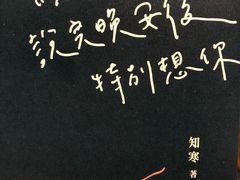 說完晚安後
特別想你
知寒 著